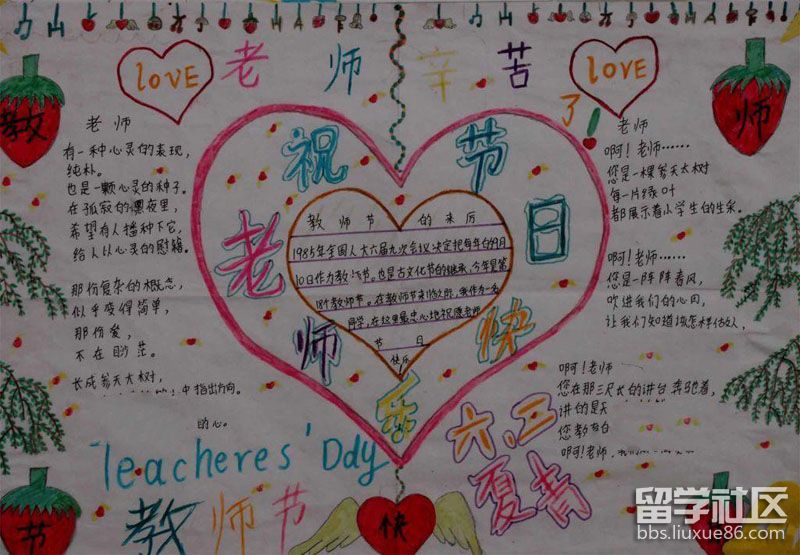 老师辛苦了!
LOVE
LOVE
教
师
节
快
祝
老
师
节
日
快
乐
老师
有一种心灵的表现,
纯朴。
也是一颗心灵的种子。
在孤寂的黑夜里,
希望有人播种下它,
给人以心灵的慰藉。
那份复杂的概念,
似乎变得简单,
那份爱,
不在的茫。
长成参天大树,
中指出方向。
的心。
教师节的来历
1985年全国人大六届九次会议决定把每年的9月
10日作为教师节。也是古文化节的继承,今年是第
18个教师节。在教师节来临之前,我作为一名
同学,在这里衷心地祝愿老师
节日
快乐
老师
啊!老师……
您是一棵参天大树
每一片绿叶
都展示着小学生的生采。
啊!老师……
您是一阵阵春风,
吹进我们的心田,
让我们知道该怎样做人,
啊!老师
您在那三尺长的讲台
讲的是
您教
啊!老师,
Teacheres' Day
教师节
六.三
夏青
留学社区
bbs.liuxue86.com